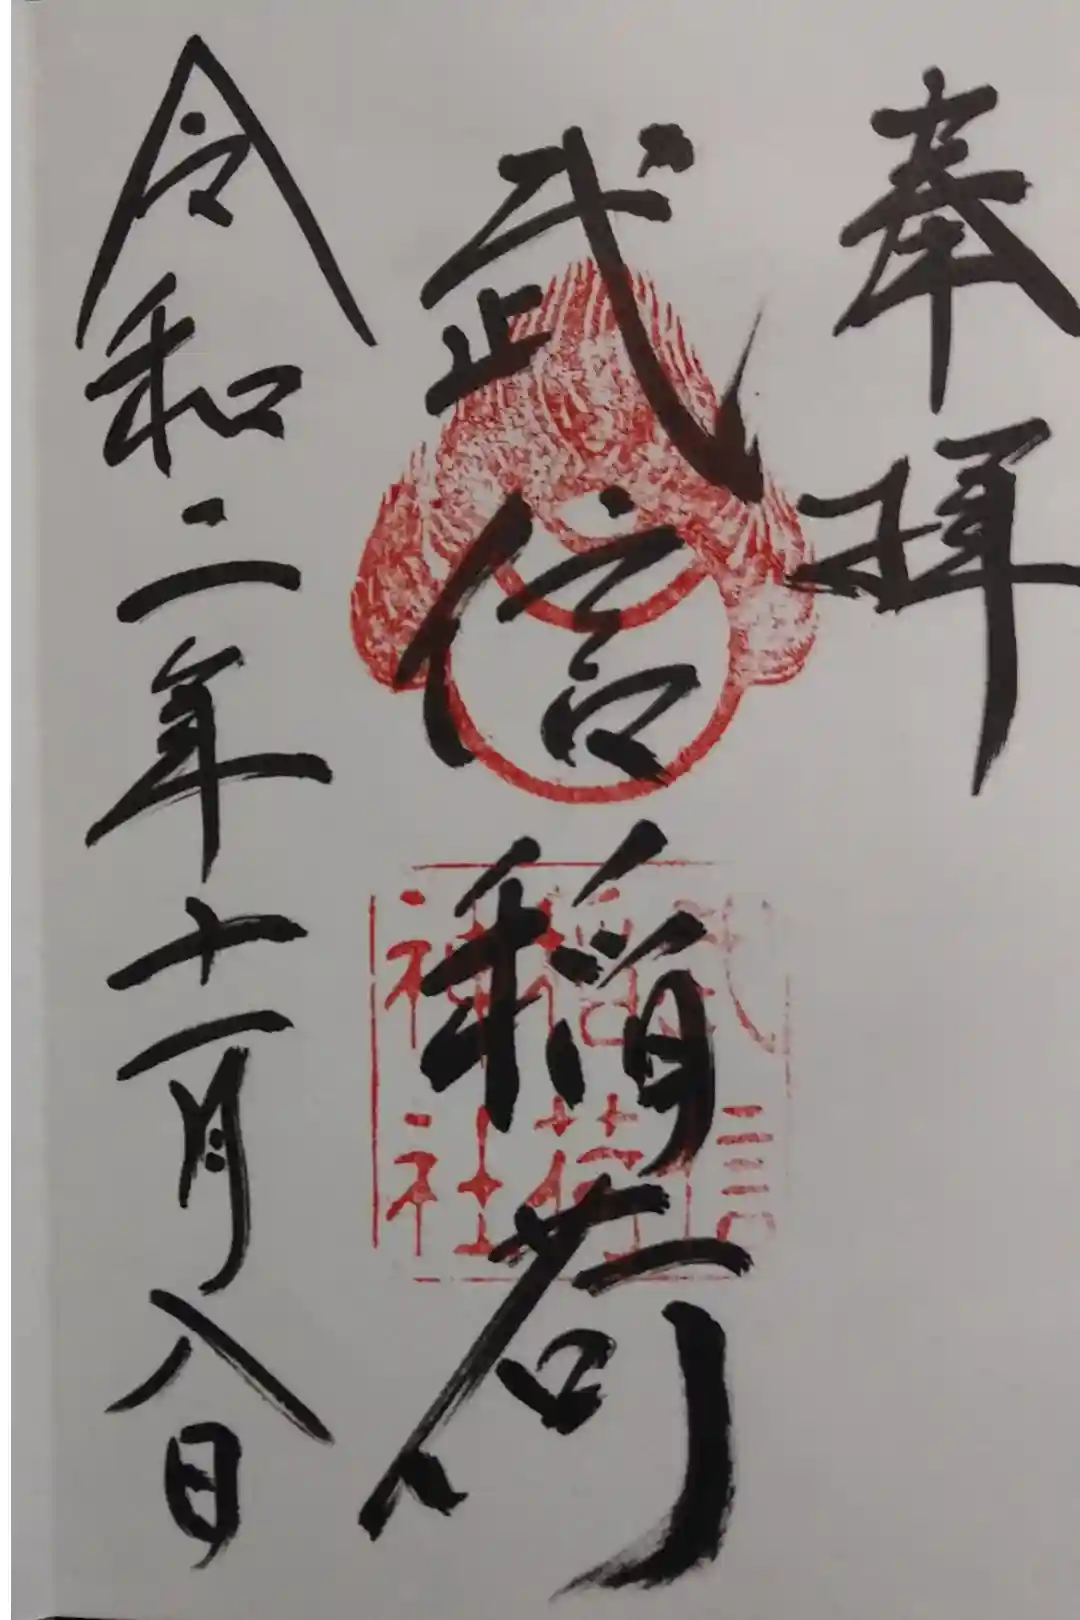 奉拝
武信稲荷
武信
稲荷
神社
令和二年十一月八日